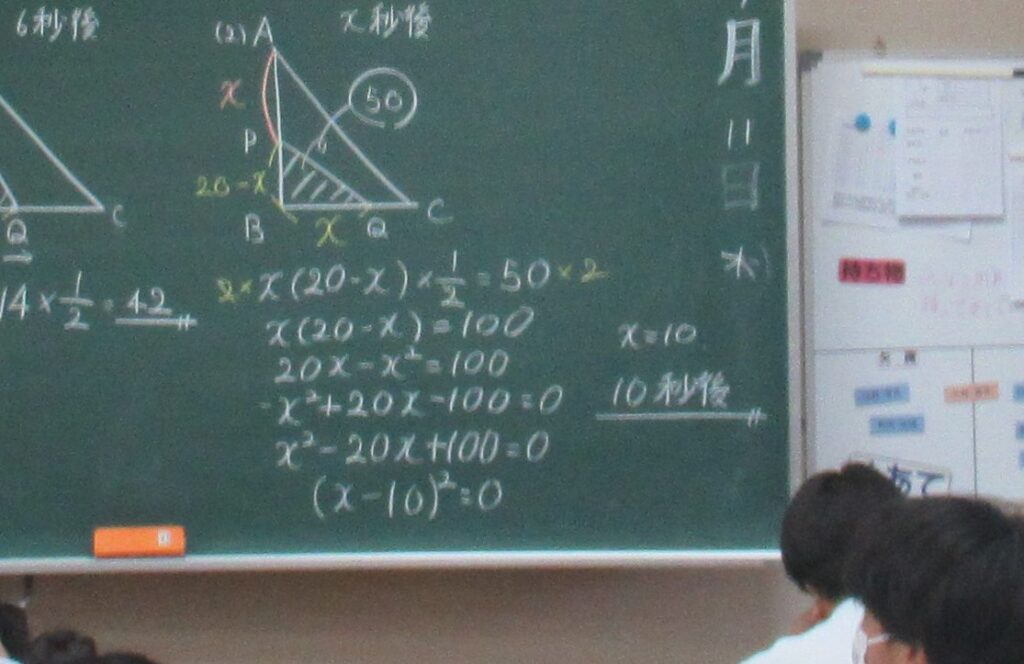 6秒後
C
Q
14×1/2=42
(2) A
x秒後
x
50
P
20-x
B
x
Q
C
2×x(20-x)×1/2=50×2
x(20-x)=100
20x-x²=100
-x²+20x-100=0
x²-20x+100=0
(x-10)²=0
x=10
10秒後
月
11
日
持ち物
あて